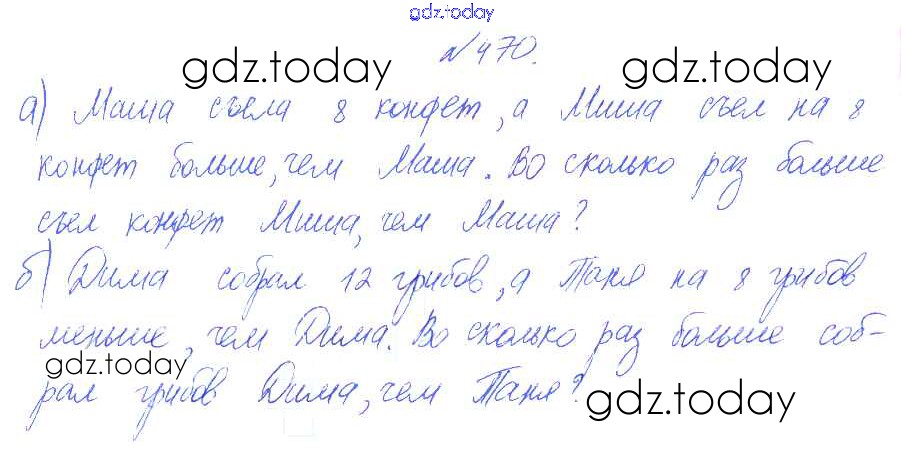 gdz.today
№470.
gdz.today gdz.today
а) Маша съела 8 конфет, а Миша съел на 8
конфет больше, чем Маша. Во сколько раз больше
съел конфет Миша, чем Маша?
б) Дима собрал 12 грибов, а Таня на 8 грибов
меньше, чем Дима. Во сколько раз больше соб-
gdz.today
рал грибов Дима, чем Таня?
gdz.today